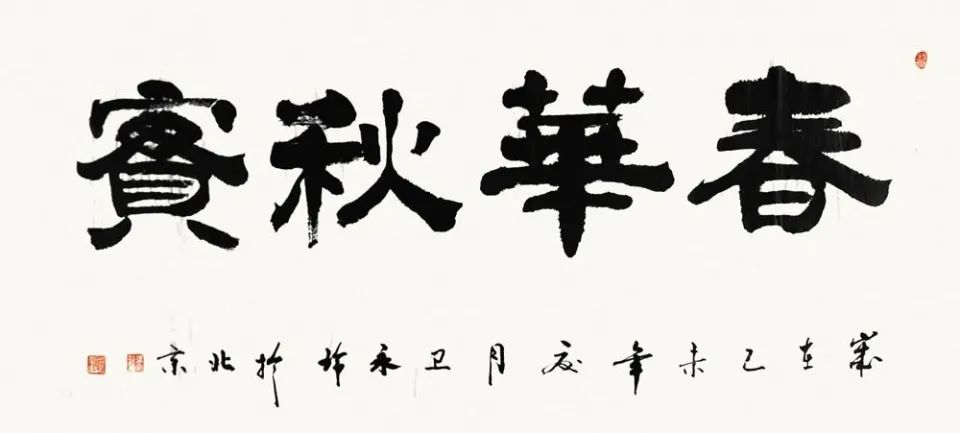 春華秋實
歲在乙未年夏月卫永於北京